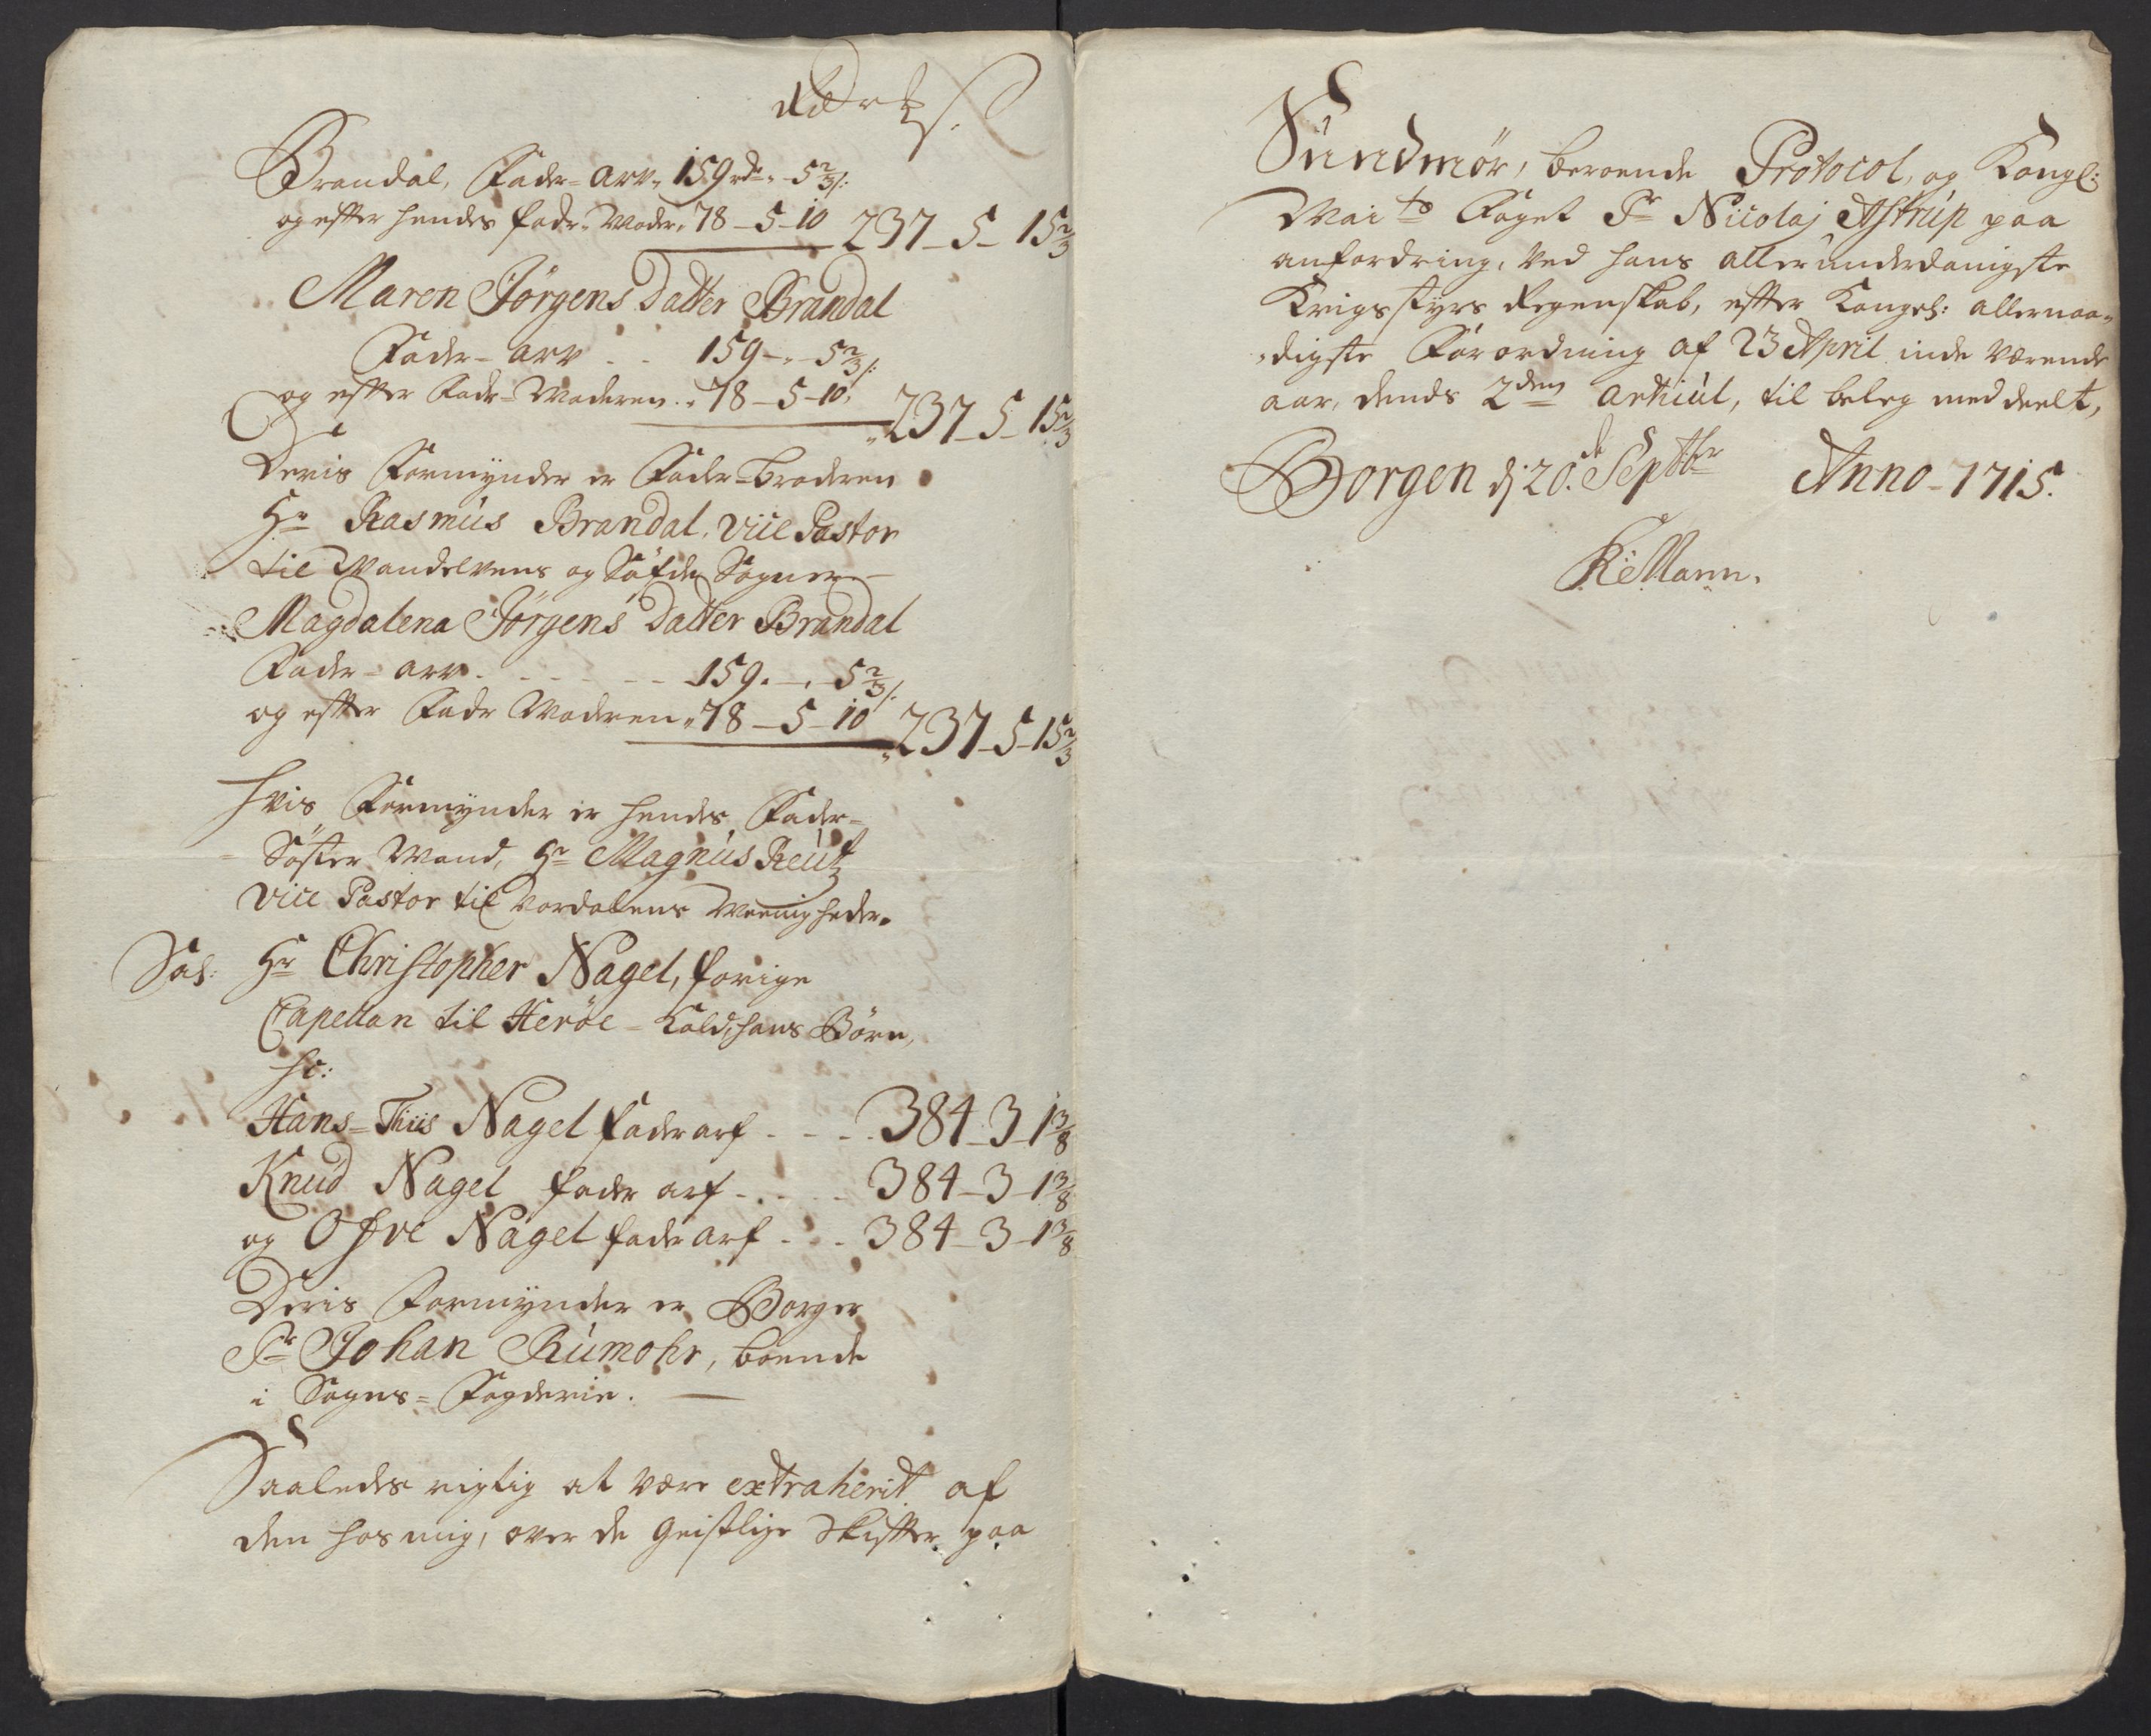 Brandal, Fader-arv. 159 rdr. - 5 2/3 ß:
og effter hendes fader-Moder. 78 - 5 - 10 237 - 5 - 15 2/3
Maren Jörgens datter Brandal
Fader-arv . . 159 - . 5 2/3 ß:
og effter Fader-Moderen . 78 - 5 - 10. 237 - 5 - 15 2/3
Deris Formynder er Fader-broderen
Hr Rasmus Brandal, vice Pastor
til Vandelvens og Söfde Sogner -
Magdalena Jörgens datter Brandal
Fader-arv . . . . . 159. - . 5 2/3 ß:
og effter Fader Moderen 78 - 5 - 10 237 - 5 - 15 2/3
Hvis Formynder er hendes Fader-
Söster Mand, Hr Magnus Reutz
vice Pastor til Vordalens Meenigheder.
Sal: Hr Christopher Nagel, forige
Capellan til Heröe-Kald, hans Börn,
sc:
Hans-Thiis Nagel faderarf . . . . 384 - 3 - 1 3/8
Knud Nagel fader arf . . . . 384 - 3 - 1 3/8
og Ofve Nagel fader arf . . . 384 - 3 - 1 3/8
Deris Formynder er Borger
Sr Johan Rumohr, boende
i Sogns-Fogderie.
Saaledes rigtig at være extraherit af
den hos mig, over de Geistlige Skiffter paa
Sundmör, beroende Protocol, og Kongl:
Maits Foget Sr Nicolaj Astrup paa
anfordring, ved hans allerunderdanigste
Krigsstyrs Regenskab, effter Kongel: allernaa-
digste Forordning af 23 April inde værende
aar, dends 2den Articul, til beleg meddeelt,
Borgen dj 20de Septbr Anno 1715.